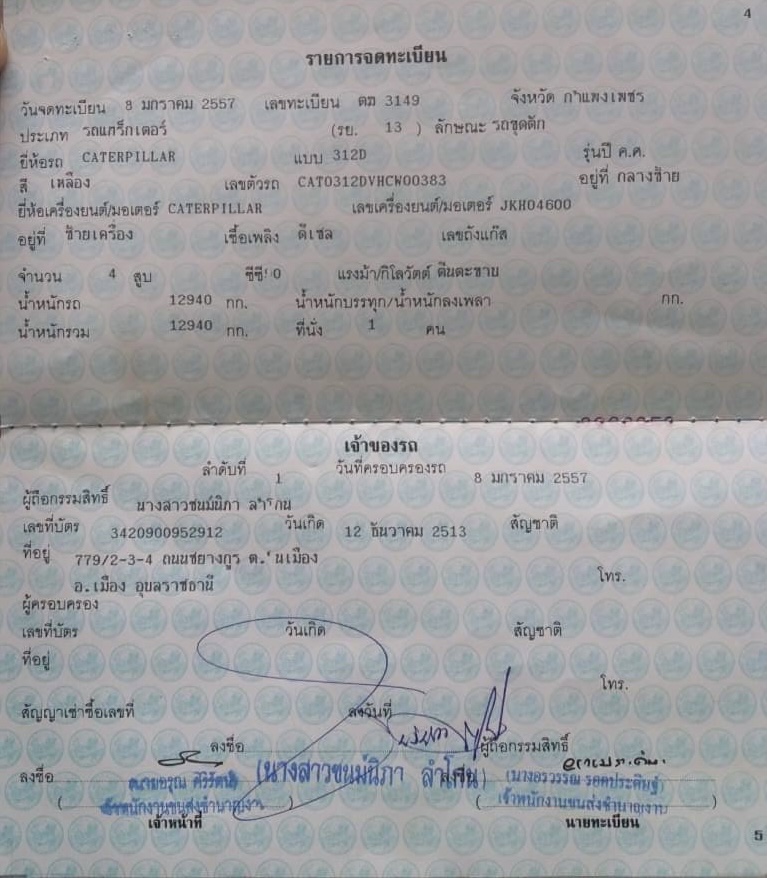 4
รายการจดทะเบียน
วันจดทะเบียน 8 มกราคม 2557 เลขทะเบียน ตฆ 3149 จังหวัด กำแพงเพชร
ประเภท รถแทร็กเตอร์ (รย. 13 ) ลักษณะ รถขุดตัก
ยี่ห้อรถ CATERPILLAR แบบ 312D รุ่นปี ค.ศ.
สี เหลือง เลขตัวรถ CAT0312DVHCW00383 อยู่ที่ กลางซ้าย
ยี่ห้อเครื่องยนต์/มอเตอร์ CATERPILLAR เลขเครื่องยนต์/มอเตอร์ JKH04600
อยู่ที่ ซ้ายเครื่อง เชื้อเพลิง ดีเซล เลขถังแก๊ส
จำนวน 4 สูบ ซีซี 0 แรงม้า/กิโลวัตต์ ตีนตะขาบ
น้ำหนักรถ 12940 กก. น้ำหนักบรรทุก/น้ำหนักลงเพลา กก.
น้ำหนักรวม 12940 กก. ที่นั่ง 1 คน
เจ้าของรถ
ลำดับที่ 1 วันที่ครอบครองรถ 8 มกราคม 2557
ผู้ถือกรรมสิทธิ์ นางสาวชนม์นิภา
เลขที่บัตร 3420900952912 วันเกิด 12 ธันวาคม 2513 สัญชาติ
ที่อยู่ 779/2-3-4 ถนนชยางกูร ต.ในเมือง
อ.เมือง อุบลราชธานี โทร.
ผู้ครอบครอง
เลขที่บัตร วันเกิด สัญชาติ
ที่อยู่
โทร.
สัญญาเช่าซื้อเลขที่ ลงวันที่
ลงชื่อ ผู้ถือกรรมสิทธิ์
ลงชื่อ (นางสาวชนม์นิภา
( เจ้าพนักงานขนส่งชำนาญงาน ) ( เจ้าพนักงานขนส่งชำนาญงาน )
เจ้าหน้าที่ นายทะเบียน
5